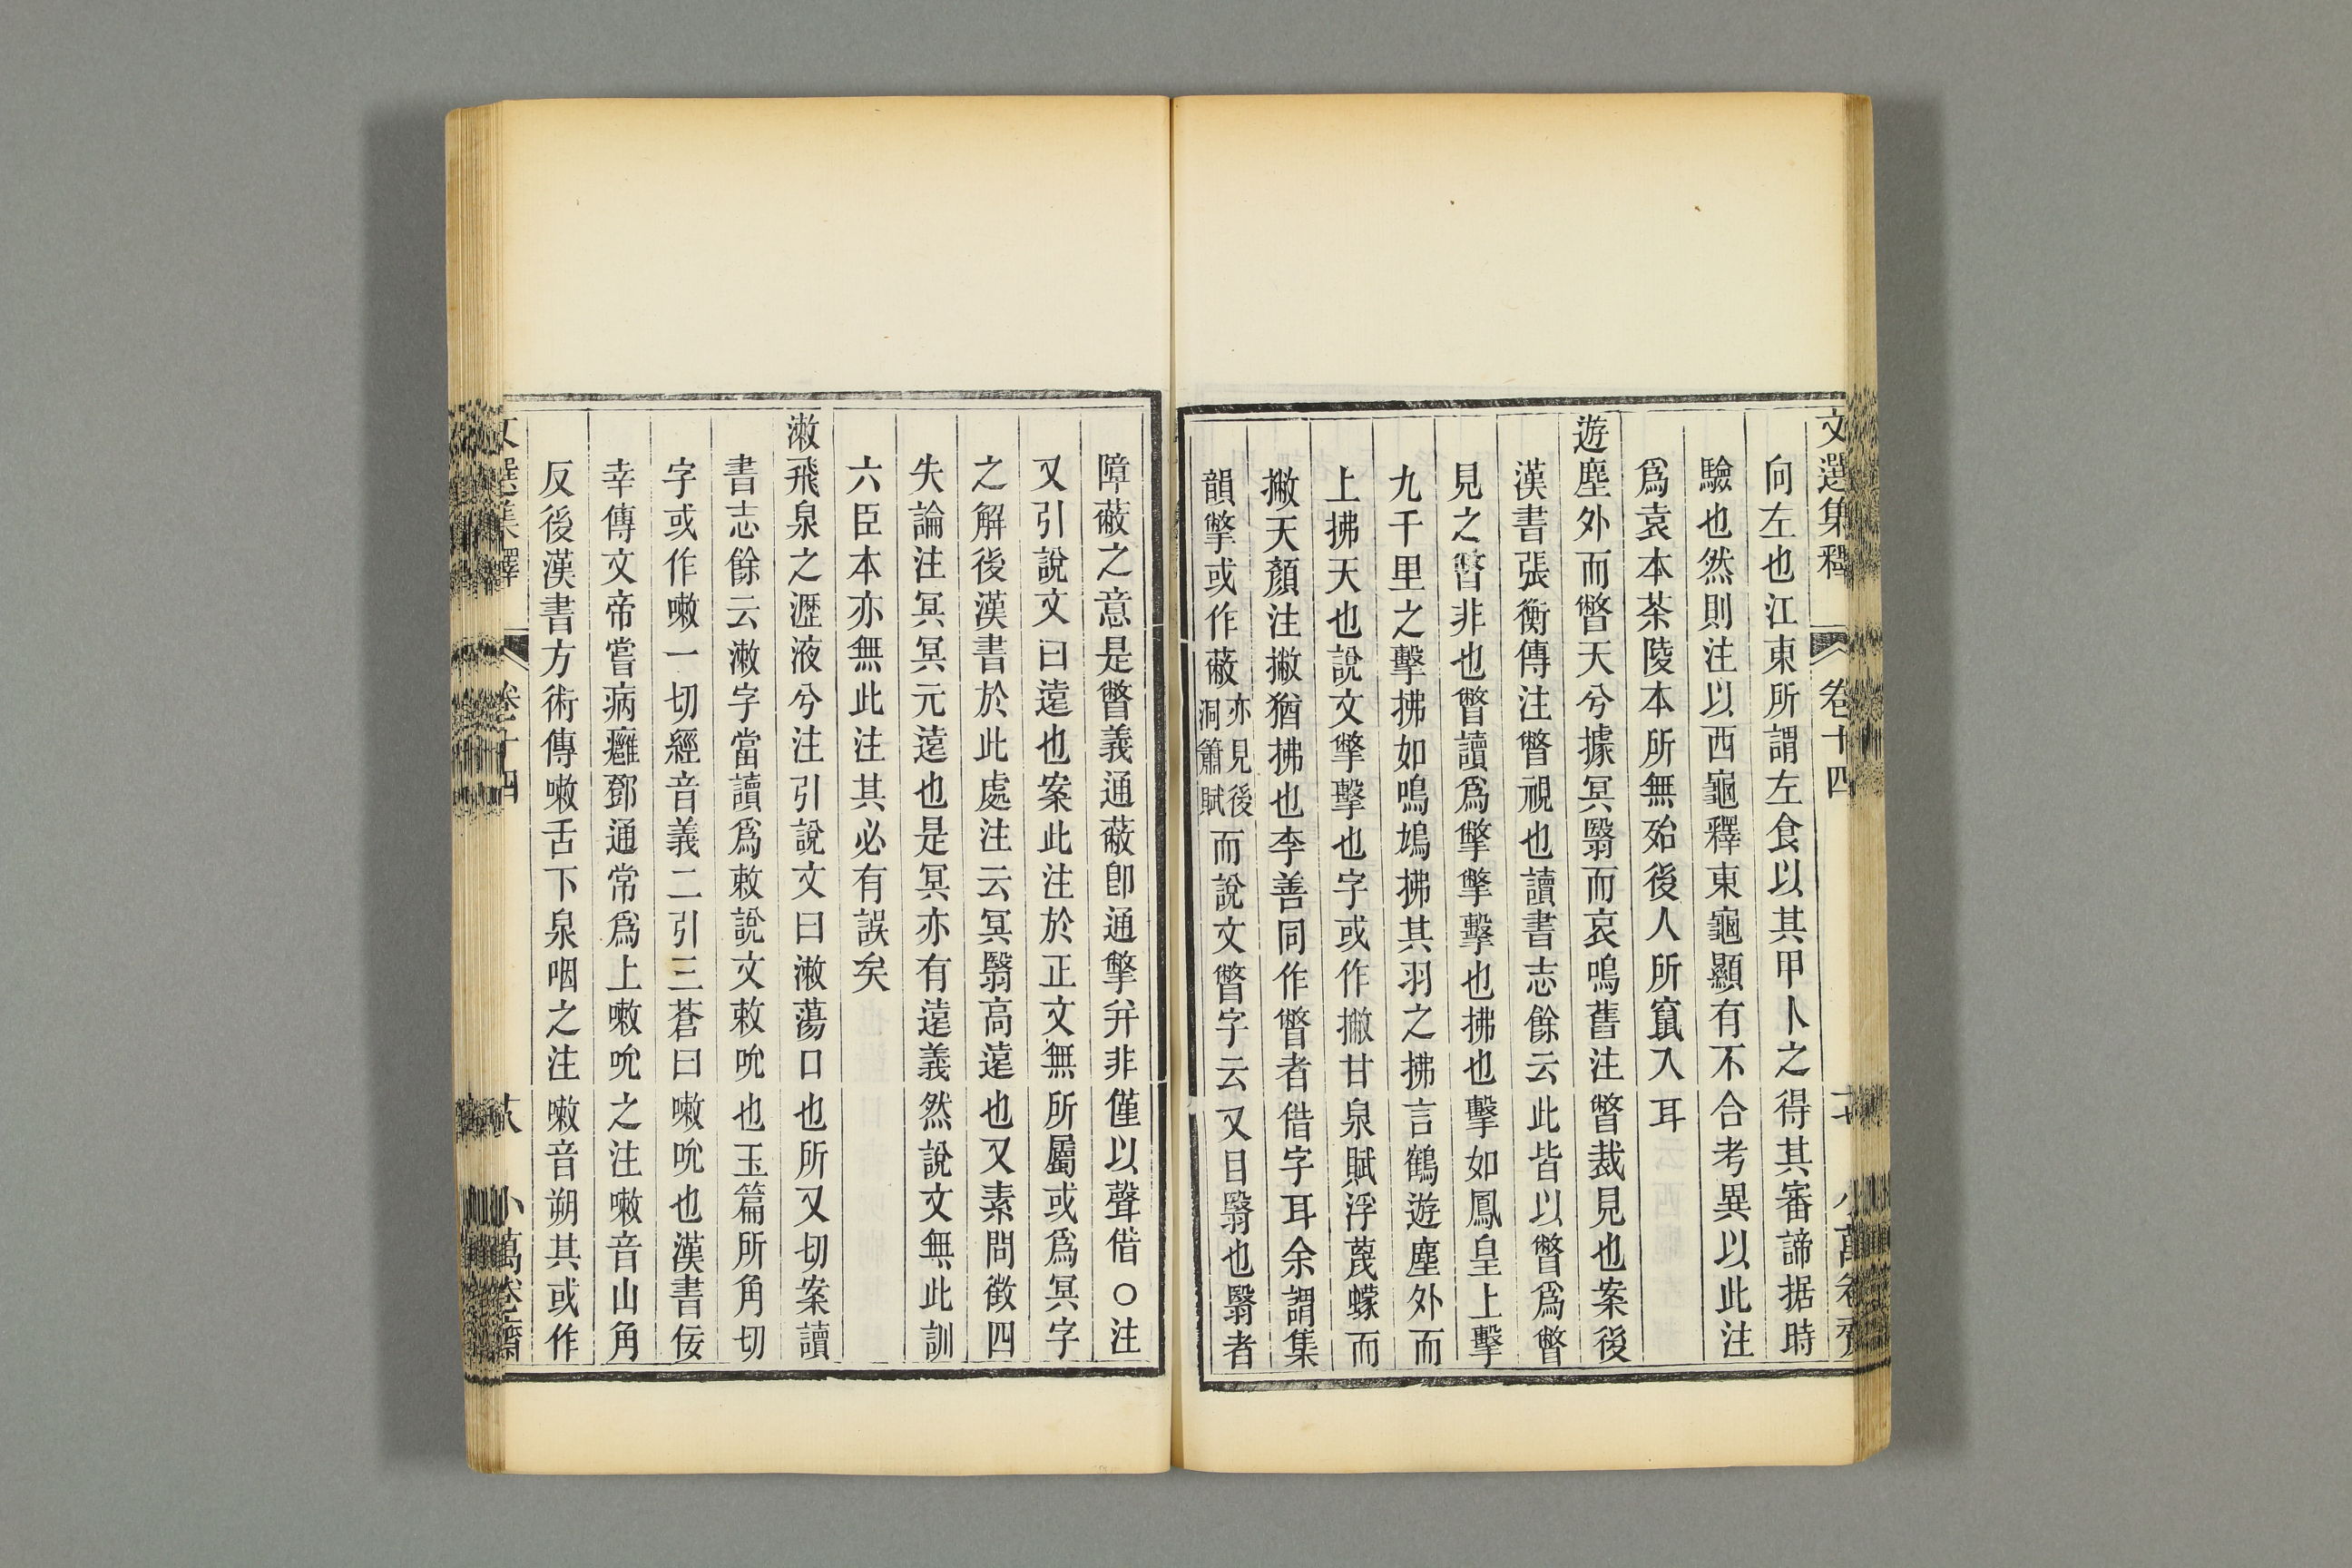 文選集釋 卷十四 十七 小萬卷齋
向左也江東所謂左食以其甲卜之得其審諦据時
驗也然則注以西龜釋東龜顯有不合考異以此注
爲袁本茶陵本所無殆後人所竄入耳
遊塵外而瞥天兮據冥翳而哀鳴舊注瞥裁見也案後
漢書張衡傳注瞥視也讀書志餘云此皆以瞥爲瞥
見之瞥非也瞥讀爲擎擎擊也拂也擊如鳳皇上擊
九千里之擊拂如鳴鳩拂其羽之拂言鶴遊塵外而
上拂天也說文擎擊也字或作撇甘泉賦浮蔑蠓而
撇天顏注撇猶拂也李善同作瞥者借字耳余謂集
韻擎或作蔽亦見後洞簫賦而說文瞥字云又目翳也翳者
障蔽之意是瞥義通蔽卽通擎幷非僅以聲借○注
又引說文曰遠也案此注於正文無所屬或爲冥字
之解後漢書於此處注云冥翳高遠也又素問徵四
失論注冥冥元遠也是冥亦有遠義然說文無此訓
六臣本亦無此注其必有誤矣
漱飛泉之瀝液兮注引說文曰漱蕩口也所又切案讀
書志餘云漱字當讀爲欶說文欶吮也玉篇所角切
字或作嗽一切經音義二引三蒼曰嗽吮也漢書佞
幸傳文帝嘗病癰鄧通常爲上嗽吮之注嗽音山角
反後漢書方術傳嗽舌下泉咽之注嗽音朔其或作
文選集釋 卷十四 小萬卷齋